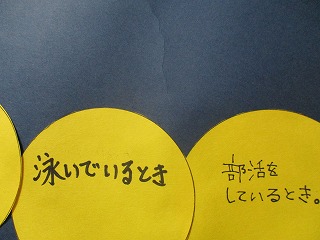 泳いでいるとき
部活を
しているとき。